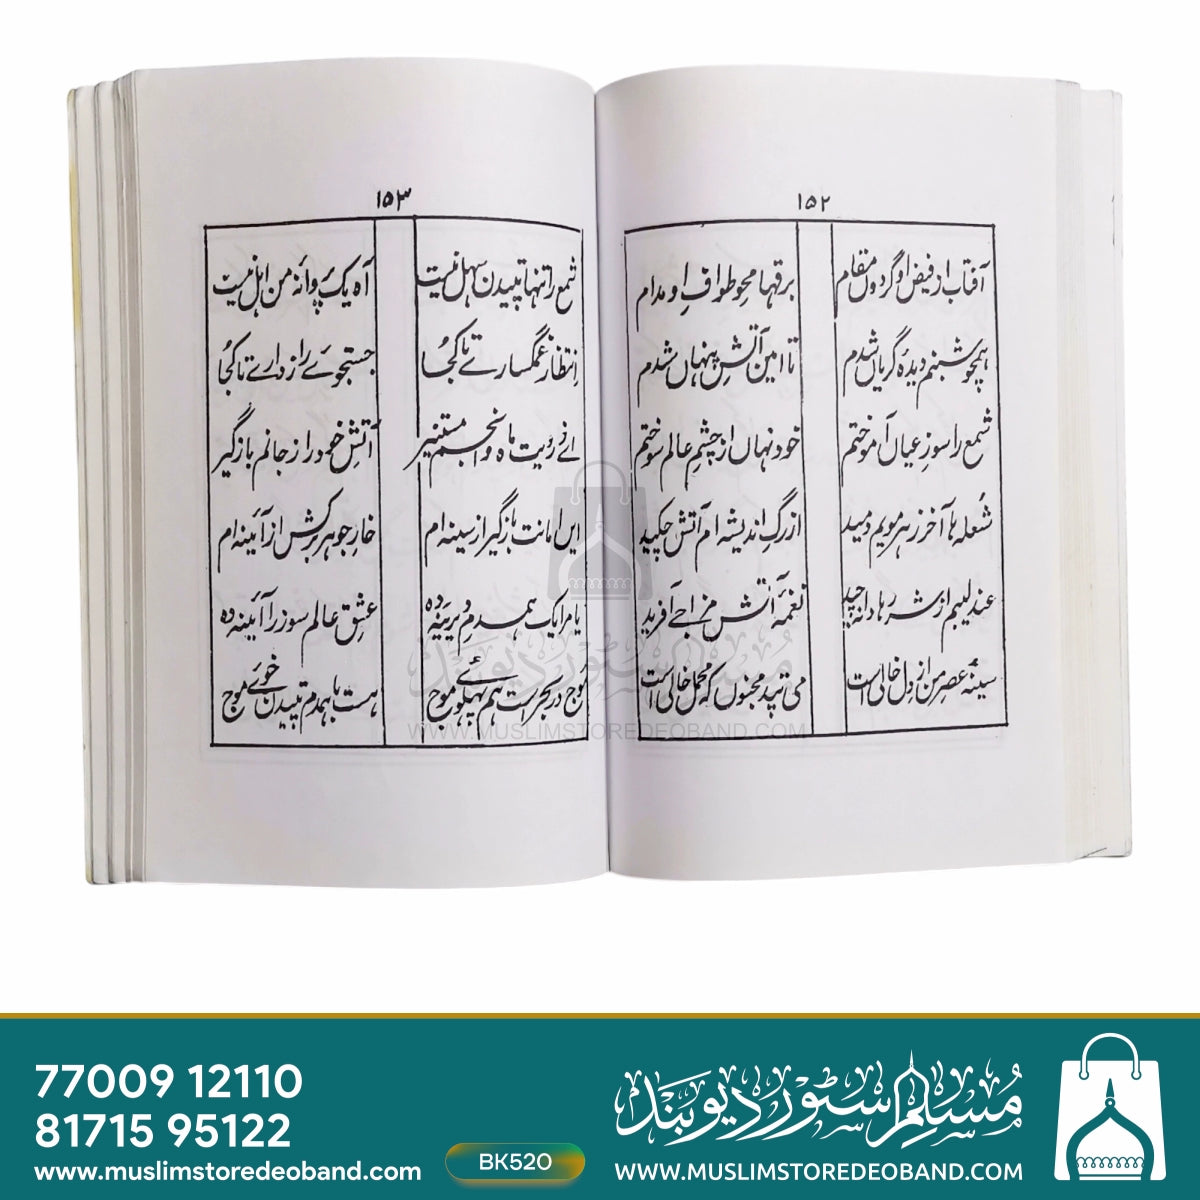 ۱۵۲
آفتاب از فیض او گردوں مقام برقہا محوِ طوافِ او مدام
ہمچو شبنم دیدۂ گریاں شدم تا امینِ آتشِ پنہاں شدم
شمع را سوزِ عیاں آموختم خود نہاں از چشمِ عالم سوختم
شعلہ ہا آخر ز ہر مویم دمید از رگِ اندیشہ ام آتش چکید
عندلیبم از شررہا دانہ چید نغمۂ آتش مزاجے آفرید
سینۂ عصرِ من از دل خالی است می تپد مجنوں کہ محمل خالی است
۱۵۳
شمع را تنہا تپیدن سہل نیست آہ یک پروانۂ من اہل نیست
انتظارِ غمگسارے تا کجا جستجوئے رازدارے تا کجا
اے ز رویت ماہ و انجم مستنیر آتشِ خود را ز جانم باز گیر
ایں امانت باز گیر از سینہ ام خارِ جوہر برکش از آئینہ ام
یا مرا یک ہمدمِ دیرینہ دہ عشقِ عالم سوز را آئینہ دہ
موج در بحر است ہم پہلوئے موج ہست با ہمدم تپیدن خوئے موج
WWW.MUSLIMSTOREDEOBAND.COM
77009 12110
81715 95122
www.muslimstoredeoband.com
BK520
مسلم سٹور دیوبند
WWW.MUSLIMSTOREDEOBAND.COM